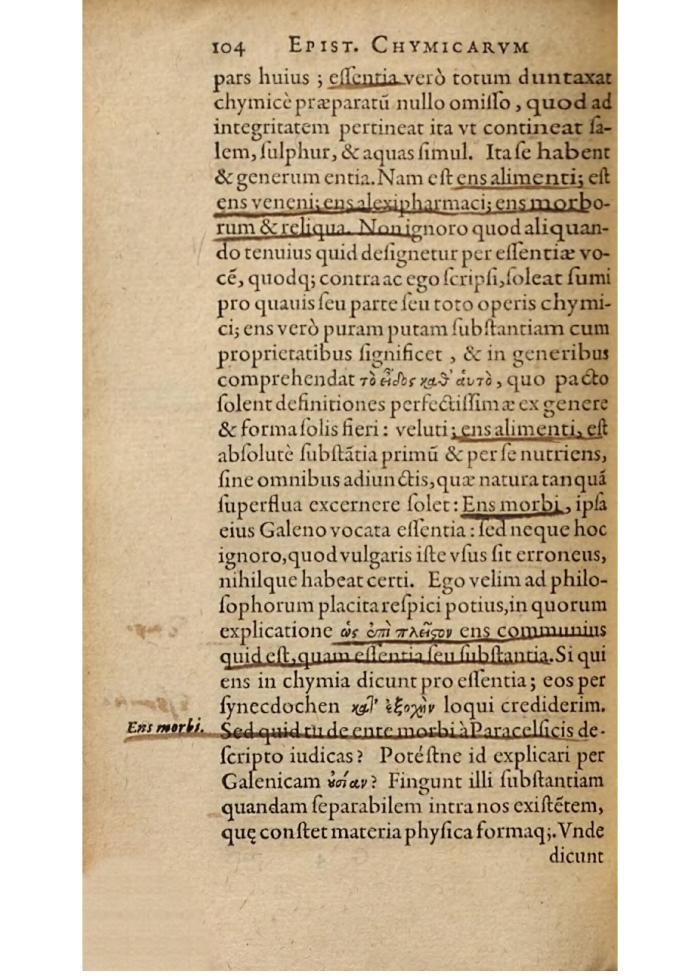 104 EPIST. CHYMICARVM
pars huius ; eſſentia verò totum duntaxat
chymicè præparatũ nullo omiſſo , quod ad
integritatem pertineat ita vt contineat ſa-
lem, ſulphur, & aquas ſimul. Ita ſe habent
& generum entia. Nam eſt ens alimenti; eſt
ens veneni; ens alexipharmaci; ens morbo-
rum & reliqua. Non ignoro quod aliquan-
do tenuius quid deſignetur per eſſentiæ vo-
cẽ, quodq; contra ac ego ſcripſi, ſoleat ſumi
pro quauis ſeu parte ſeu toto operis chymi-
ci; ens verò puram putam ſubſtantiam cum
proprietatibus ſignificet , & in generibus
comprehendat τὸ εἶδος καθ' ἁυτὸ, quo pacto
ſolent definitiones perfectiſſimæ ex genere
& forma ſolis fieri : veluti ; ens alimenti, eſt
abſolutè ſubſtãtia primũ & per ſe nutriens,
ſine omnibus adiunctis, quæ natura tanquã
ſuperflua excernere ſolet : Ens morbi , ipſa
eius Galeno vocata eſſentia : ſed neque hoc
ignoro, quod vulgaris iſte vſus ſit erroneus,
nihilque habeat certi. Ego velim ad philo-
ſophorum placita reſpici potius, in quorum
explicatione ὡς ἐπὶ πλεῖςον ens communius
quid eſt, quam eſſentia ſeu ſubſtantia. Si qui
ens in chymia dicunt pro eſſentia ; eos per
ſynecdochen κατ' ἐξοχὴν loqui crediderim.
Ens morbi. Sed quid tu de ente morbi à Paracelſicis de-
ſcripto iudicas ? Potéſtne id explicari per
Galenicam ȣ̓σίαν ? Fingunt illi ſubſtantiam
quandam ſeparabilem intra nos exiſtẽtem,
quę conſtet materia phyſica formaq;. Vnde
dicunt